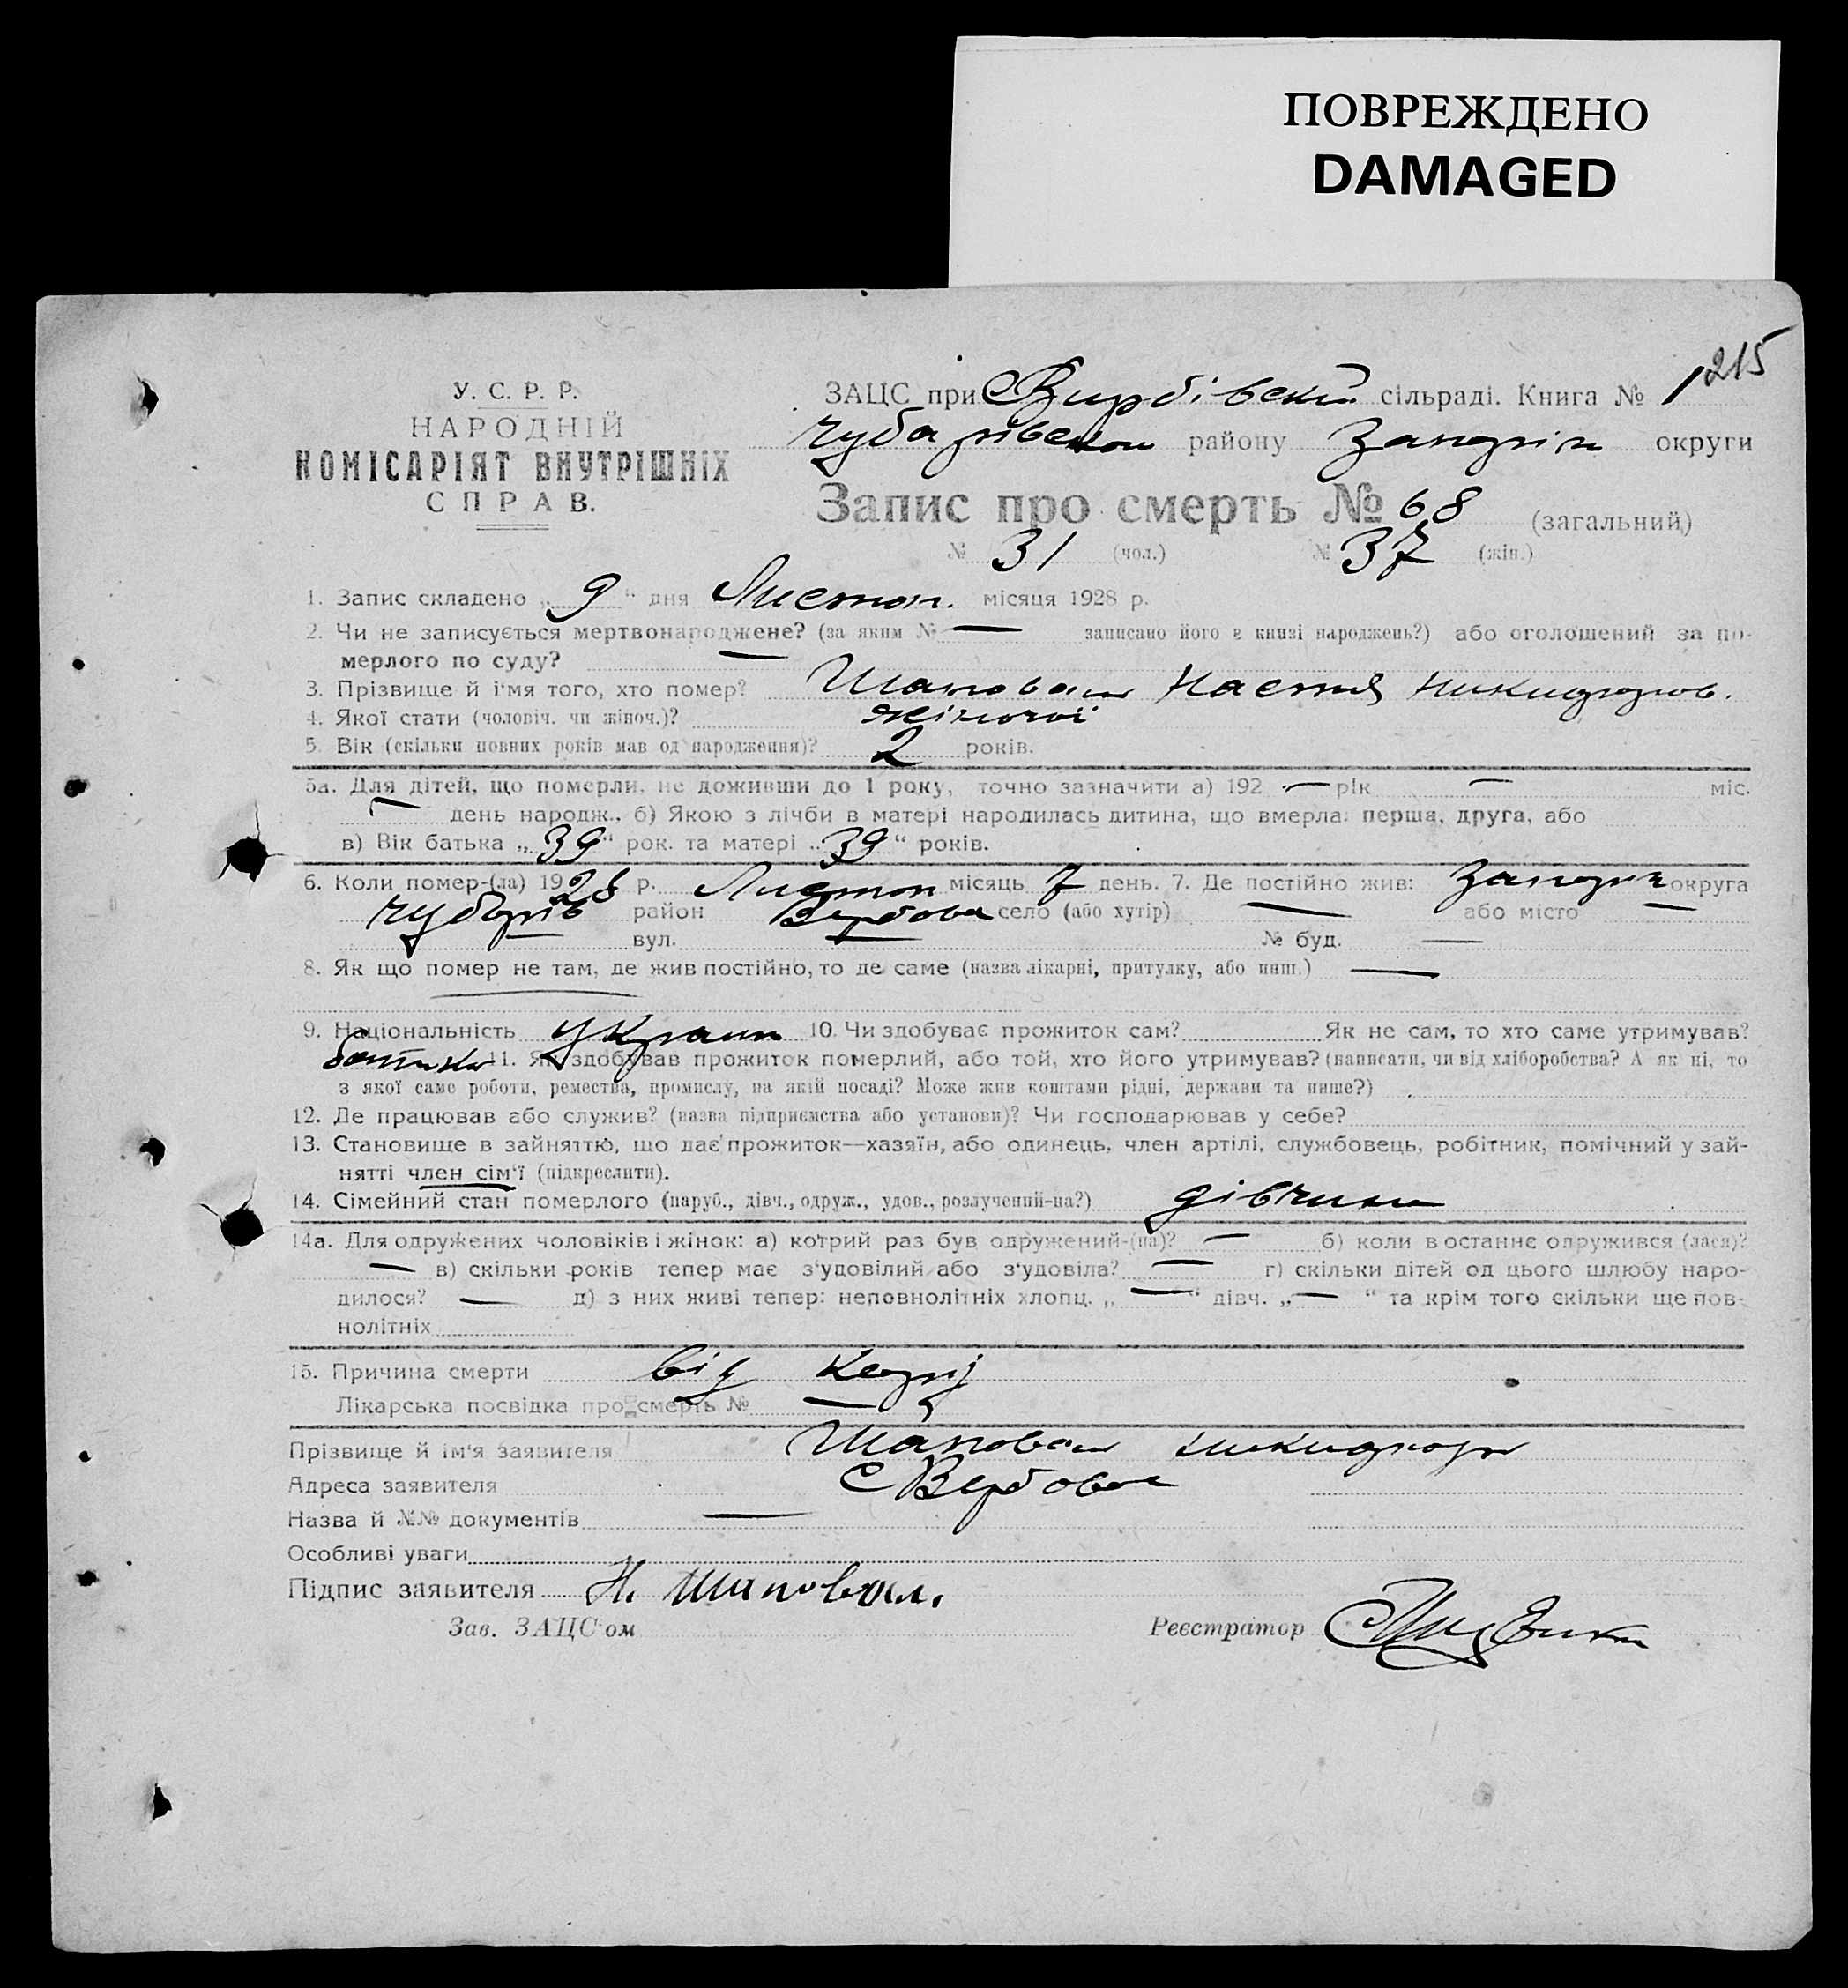 ПОВРЕЖДЕНО
DAMAGED
215
У. С. Р. Р.
НАРОДНІЙ
КОМІСАРІЯТ ВНУТРІШНІХ
СПРАВ.
ЗАЦС при сільраді. Книга № 1
району округи
Запис про смерть № 68 (загальний)
№ 31 (чол.) № 37 (жін.)
1. Запис складено „ 9 “ дня Листоп. місяця 1928 р.
2. Чи не записується мертвонароджене? (за яким № — записано його в книзі народжень?) або оголошений за по-
мерлого по суду? —
3. Прізвище й ім'я того, хто помер? Шаповал Настя
4. Якої стати (чоловіч. чи жіноч.)? жіночої
5. Вік (скільки повних років мав од народження)? 2 років.
5а. Для дітей, що померли, не доживши до 1 року, точно зазначити а) 192 — рік — міс.
— день народж., б) Якою з лічби в матері народилась дитина, що вмерла: перша, друга, або
в) Вік батька „ 39 “ рок. та матері „ 39 “ років.
6. Коли помер-(ла) 1928 р. Листоп місяць 7 день. 7. Де постійно жив: округа
район Вербова село (або хутір) — або місто —
вул. — № буд. —
8. Як що помер не там, де жив постійно, то де саме (назва лікарні, притулку, або инш.) —
9. Національність Україн 10. Чи здобуває прожиток сам? Як не сам, то хто саме утримував?
батько 11. Як здобував прожиток померлий, або той, хто його утримував? (написати, чи від хліборобства? А як ні, то
з якої саме роботи, ремества, промислу, на якій посаді? Може жив коштами рідні, держави та инше?)
12. Де працював або служив? (назва підприємства або установи)? Чи господарював у себе?
13. Становище в зайняттю, що дає прожиток—хазяїн, або одинець, член артілі, службовець, робітник, помічний у зай-
нятті член сім'ї (підкреслити).
14. Сімейний стан померлого (паруб., дівч., одруж., удов., розлучений-на?) дівчина
14а. Для одружених чоловіків і жінок: а) котрий раз був одружений-(на)? — б) коли в останнє одружився (лася)?
— в) скільки років тепер має з'удовілий або з'удовіла? — г) скільки дітей од цього шлюбу наро-
дилося? — д) з них живі тепер: неповнолітніх хлопц. „ — “ дівч. „ — “ та крім того скільки ще пов-
нолітніх
15. Причина смерти від
Лікарська посвідка про смерть № —
Прізвище й ім'я заявителя Шаповал
Адреса заявителя с Вербове
Назва й №№ документів —
Особливі уваги
Підпис заявителя Н. Шаповал.
Зав. ЗАЦС'ом Реєстратор